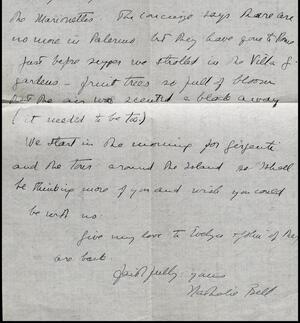 the Marionettes. The concierge says there are
no more in Palermo but they have gone to
Just before supper we strolled in the Villa G.
gardens - fruit trees so full of bloom
that the air was scented a block away
(it needed to be too)
We start in the morning for Girgenti
and the tour around the Island so I shall
be thinking more of you and wish you could
be with us.
Give my love to Evelyn if
are back
Faithfully yours
Nathalie Bell